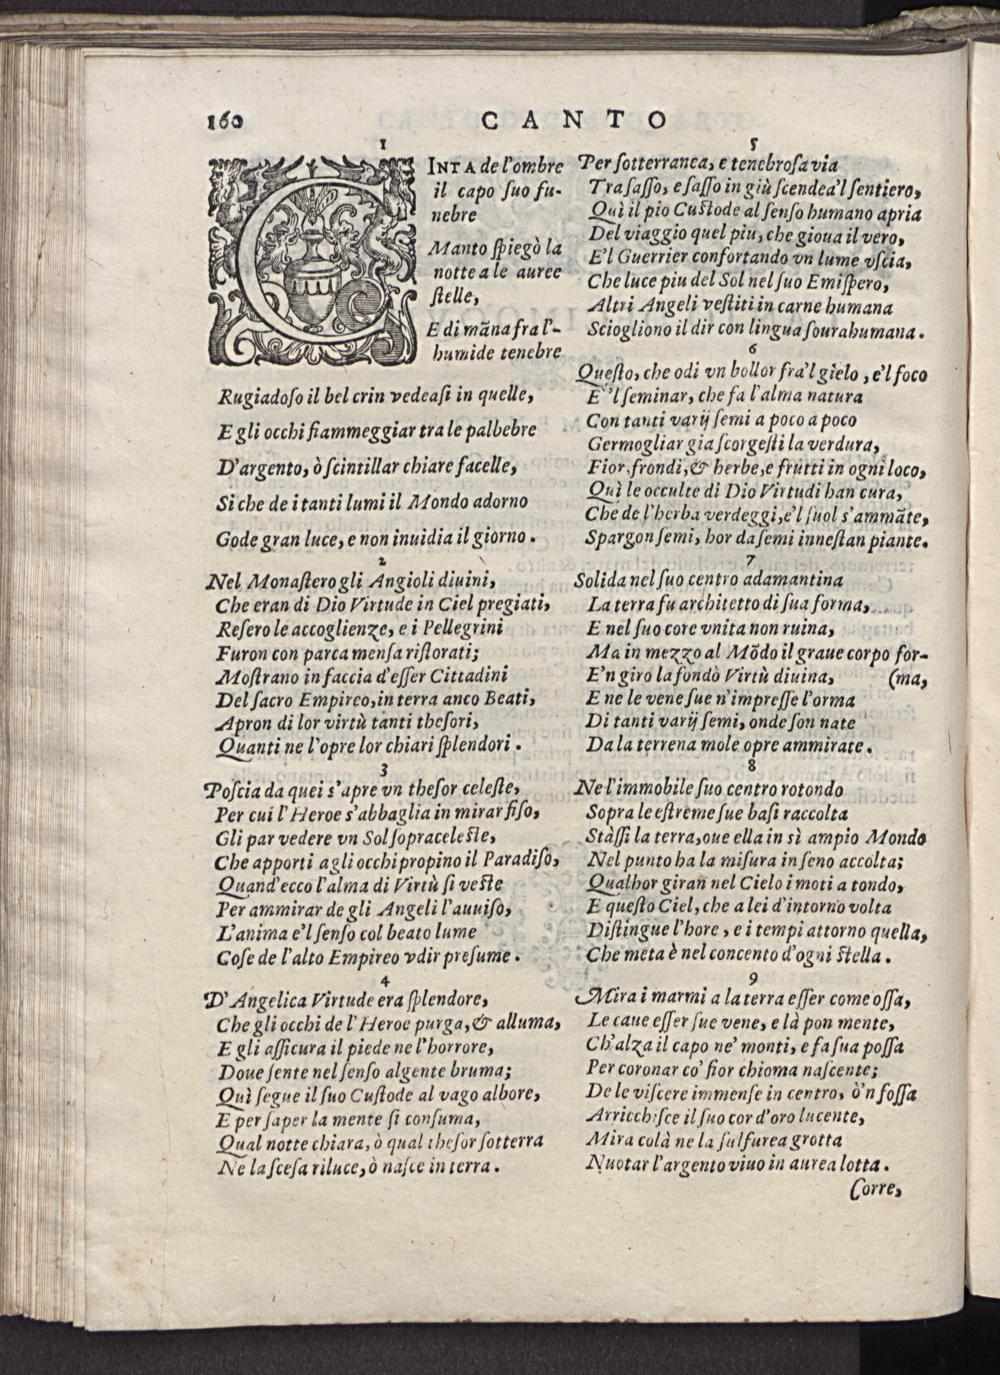 160
CANTO
1
CINTA de l'ombre
il capo ſuo fu-
nebre
Manto ſpiegò la
notte a le auree
ſtelle,
E di mãna fra l'-
humide tenebre
Rugiadoſo il bel crin vedeaſi in quelle,
E gli occhi fiammeggiar tra le palbebre
D'argento, ò ſcintillar chiare facelle,
Si che de i tanti lumi il Mondo adorno
Gode gran luce, e non inuidia il giorno.
2
Nel Monaſtero gli Angioli diuini,
Che eran di Dio Virtude in Ciel pregiati,
Reſero le accoglienze, e i Pellegrini
Furon con parca menſa riſtorati;
Moſtrano in faccia d'eſſer Cittadini
Del ſacro Empireo, in terra anco Beati,
Apron di lor virtù tanti theſori,
Quanti ne l'opre lor chiari ſplendori.
3
Poſcia da quei s'apre vn theſor celeſte,
Per cui l'Heroe s'abbaglia in mirar fiſo,
Gli par vedere vn Sol ſopraceleſte,
Che apporti a gli occhi propino il Paradiſo,
Quand'ecco l'alma di Virtù ſi veſte
Per ammirar de gli Angeli l'auuiſo,
L'anima e'l ſenſo col beato lume
Coſe de l'alto Empireo vdir preſume.
4
D'Angelica Virtude era ſplendore,
Che gli occhi de l'Heroe purga, & alluma,
E gli aſſicura il piede ne l'horrore,
Doue ſente nel ſenſo algente bruma;
Quì ſegue il ſuo Cuſtode al vago albore,
E per ſaper la mente ſi conſuma,
Qual notte chiara, ò qual theſor ſotterra
Ne la ſceſa riluce, ò naſce in terra.
5
Per ſotterranea, e tenebroſa via
Tra ſaſſo, e ſaſſo in giù ſcendea'l ſentiero,
Quì il pio Cuſtode al ſenſo humano apria
Del viaggio quel piu, che gioua il vero,
E'l Guerrier confortando vn lume vſcia,
Che luce piu del Sol nel ſuo Emiſpero,
Altri Angeli veſtiti in carne humana
Sciogliono il dir con lingua ſourahumana.
6
Queſto, che odi vn bollor fra'l gielo, e'l foco
E'l ſeminar, che fa l'alma natura
Con tanti varij ſemi a poco a poco
Germogliar gia ſcorgeſti la verdura,
Fior, frondi, & herbe, e frutti in ogni loco,
Quì le occulte di Dio Virtudi han cura,
Che de l'herba verdeggi, e'l ſuol s'ammãte,
Spargon ſemi, hor da ſemi inneſtan piante.
7
Solida nel ſuo centro adamantina
La terra fu architetto di ſua forma,
E nel ſuo core vnita non ruina,
Ma in mezzo al Mõdo il graue corpo for-
E'n giro la fondò Virtù diuina, (ma,
E ne le vene ſue n'impreſſe l'orma
Di tanti varij ſemi, onde ſon nate
Da la terrena mole opre ammirate.
8
Ne l'immobile ſuo centro rotondo
Sopra le eſtreme ſue baſi raccolta
Stàſſi la terra, oue ella in sì ampio Mondo
Nel punto ha la miſura in ſeno accolta;
Qualhor giran nel Cielo i moti a tondo,
E queſto Ciel, che a lei d'intorno volta
Diſtingue l'hore, e i tempi attorno quella,
Che meta è nel concento d'ogni ſtella.
9
Mira i marmi a la terra eſſer come oſſa,
Le caue eſſer ſue vene, e là pon mente,
Ch'alza il capo ne' monti, e fa ſua poſſa
Per coronar co' fior chioma naſcente;
De le viſcere immenſe in centro, ò'n foſſa
Arricchiſce il ſuo cor d'oro lucente,
Mira colà ne la ſulfurea grotta
Nuotar l'argento viuo in aurea lotta.
Corre,